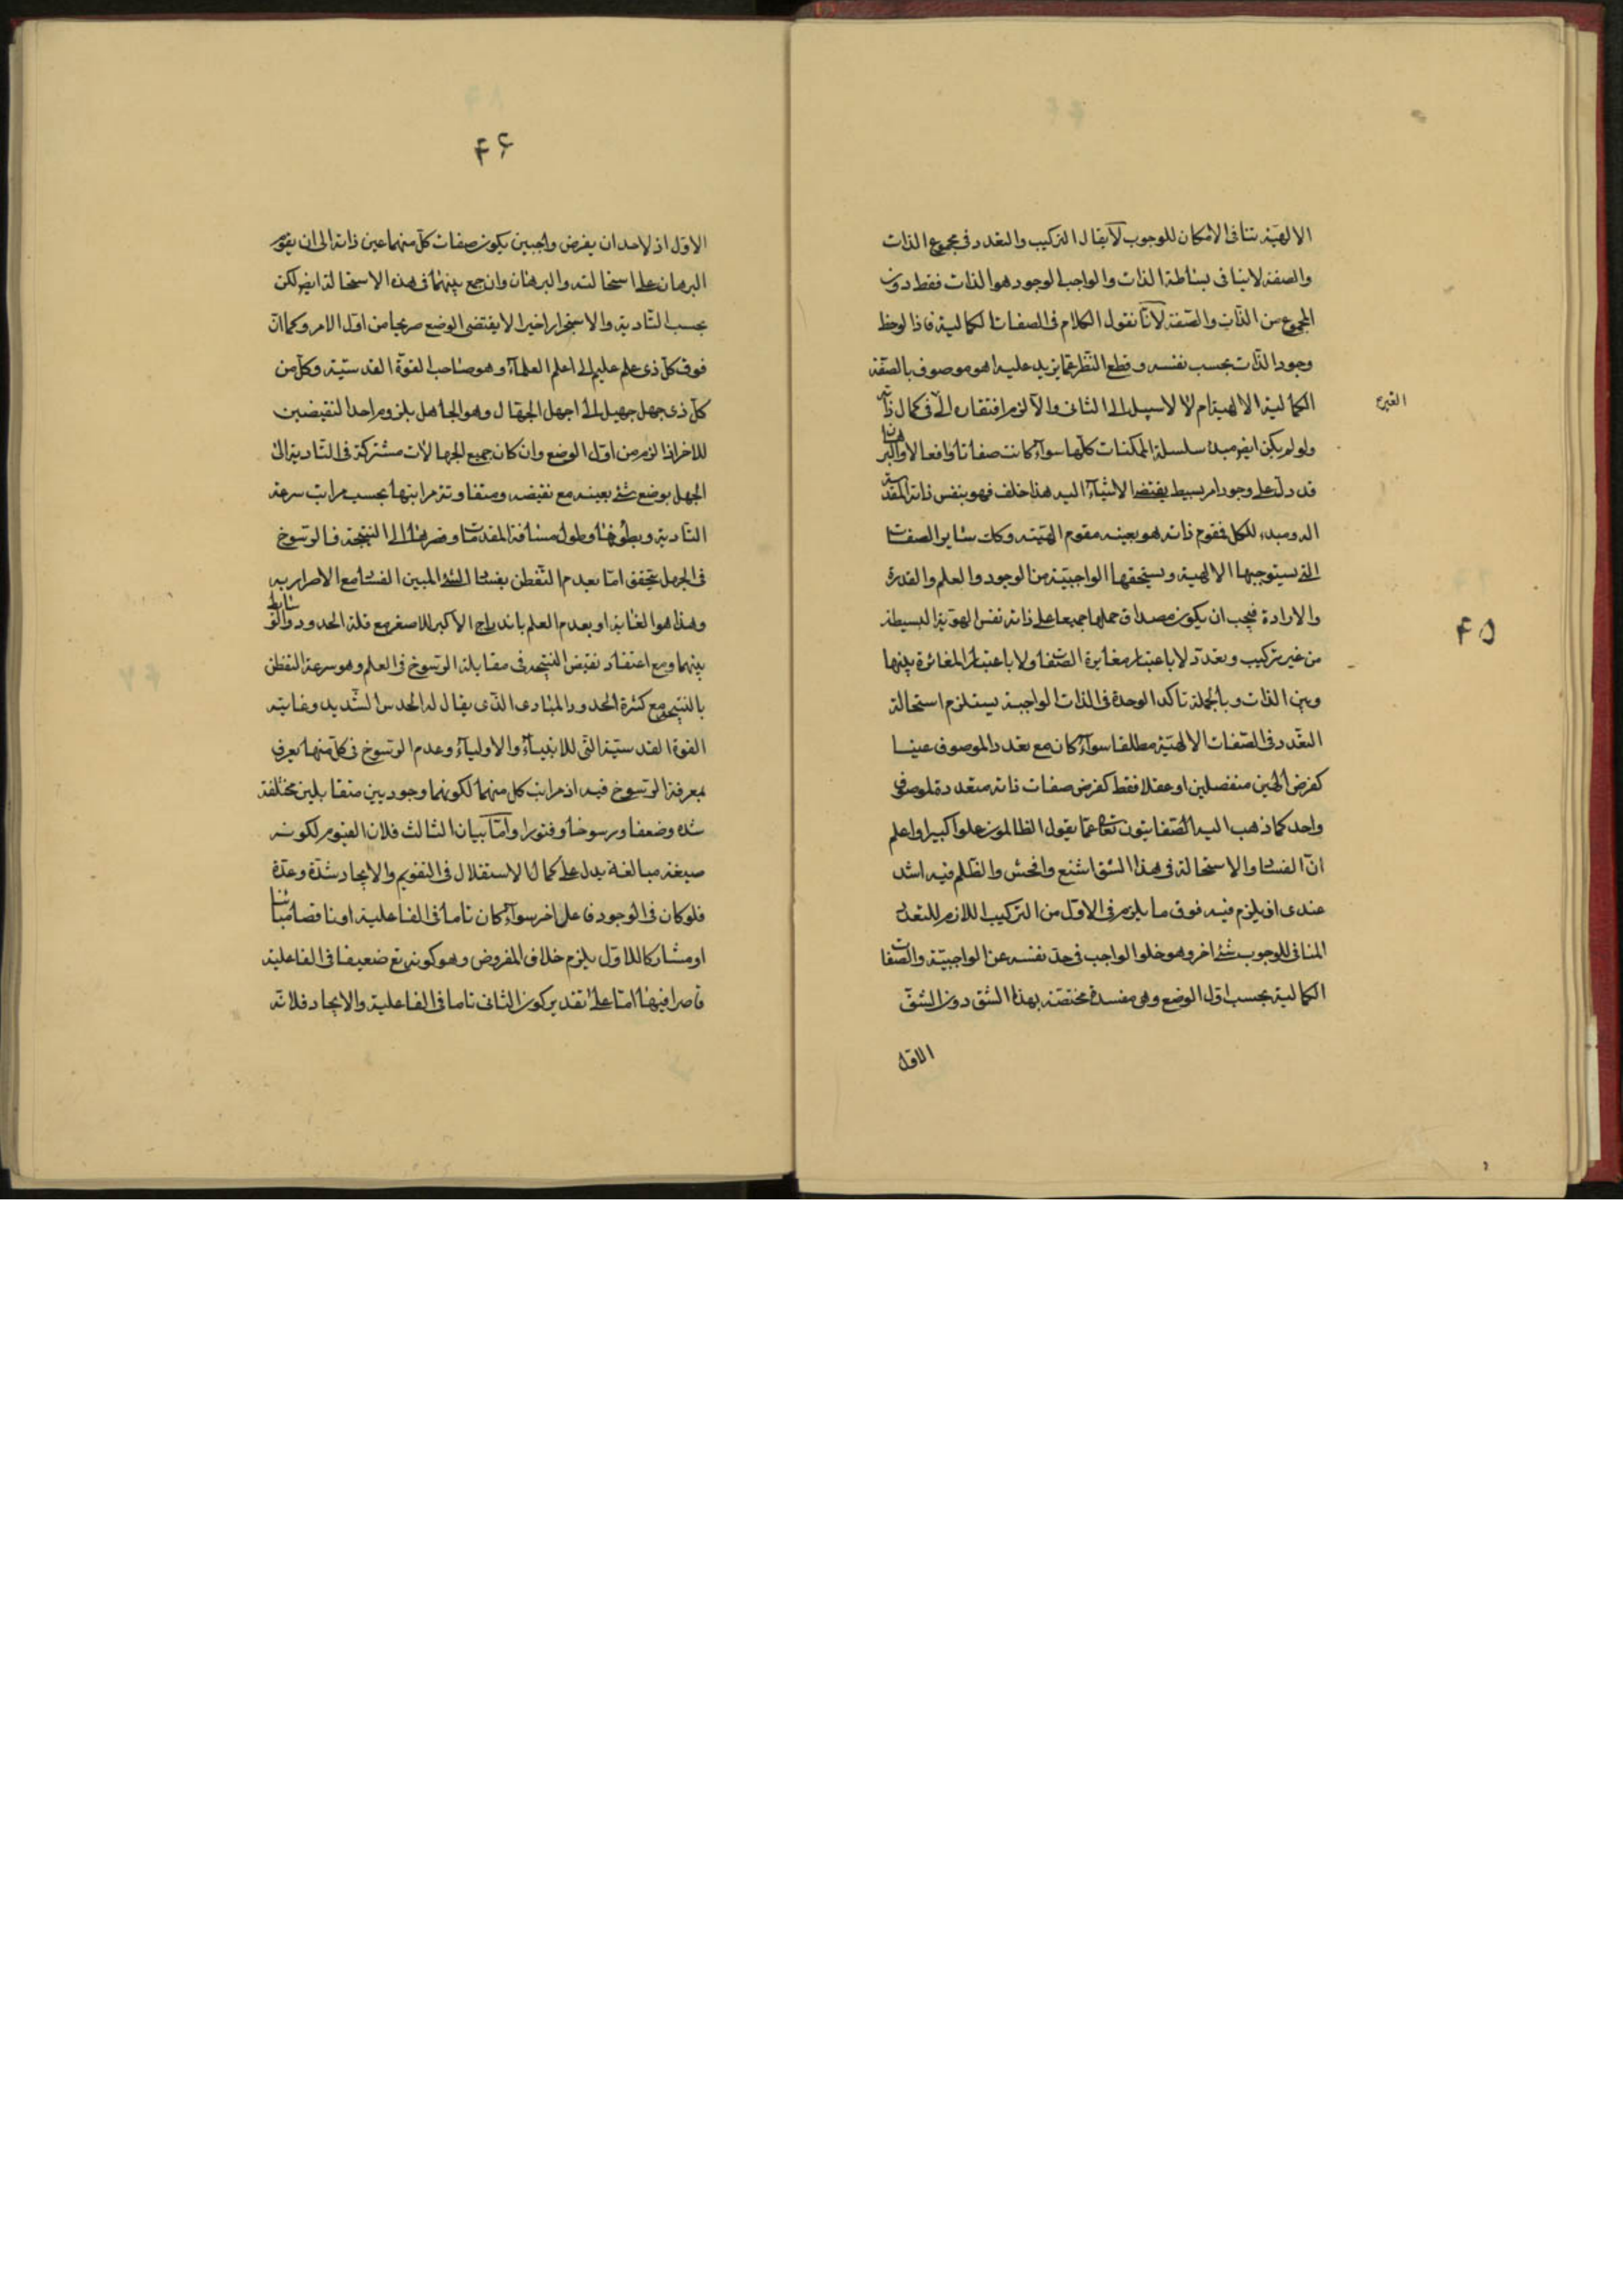 ۴۵
الالهية تنافى الامكان للوجوب لا يقال التركيب والتعدد فى مجموع الذات
والصفة لا ينافى بساطة الذات والواجب الوجود هو الذات فقط دون
المجموع من الذات والصفة لانا نقول الكلام فى الصفات الكمالية فاذا لوحظ
وجود الذات بحسب نفسه وقطع النظر عما يزيد عليه اهو موصوف بالصفة
الكمالية الالهية ام لا لا سبيل الى الثانى والا لزم افتقاره الى فى كمال ذاته
الغير
ولو لم يكن ايضا مبدا سلسلة الممكنات كلها سواء كانت صفاتا او افعالا والبرهان
قد دل على وجود امر بسيط يفتقر الاشياء اليه هذا خلف فهو بنفس ذاته المقدسة
اله ومبدء للكل فمقوم ذاته هو بعينه مقوم الهيته وكك سائر الصفات
التى يستوجبها الالهية ويستحقها الواجبية من الوجود والعلم والقدرة
والارادة فيجب ان يكون مصداق حملها جميعا على ذاته نفس الهوية البسيطة
من غير تركيب وتعدد لا باعتبار مغايرة الصفات ولا باعتبار المغائرة بينها
وبين الذات وبالجملة تاكد الوحدة فى الذات الواجبة يستلزم استحالة
التعدد فى الصفات الالهية مطلقا سواء كان مع تعدد الموصوف عينا
كفرض الهين منفصلين او عقلا فقط كفرض صفات ذاته متعددة لموصوف
واحد كما ذهب اليه الصفاتيون تعالى عما يقول الظالمون علوا كبيرا واعلم
ان الفساد والاستحالة فى هذا الشق اشنع وافحش والظلم فيه اشد
عندى اذ يلزم فيه فوق ما يلزم فى الاول من التركيب اللازم للتعدد
المنافى للوجوب شئ اخر وهو خلو الواجب فى حد نفسه عن الواجبية والصفات
الكمالية بحسب اول الوضع وهى مفسدة مختصة بهذا الشق دون الشق
الاول
۴۶
الاول اذ لاحد ان يفرض واجبين يكون صفات كل منهما عين ذاته الى ان يقوم
البرهان على استحالته والبرهان وان جمع بينهما فى هذه الاستحالة ايضا لكن
بحسب التادية والاستجرار اخيرا لا يقتضى الوضع صريحا من اول الامر وكما ان
فوق كل ذى علم عليم الى اعلم العلماء وهو صاحب القوة القدسية وكل من
كل ذى جهل جهيل الى اجهل الجهال وهو الجاهل بلزوم احد النقيضين
للاخر اذا لزم من اول الوضع وان كان جميع الجهالات مشتركة فى التادية الى
الجهل بوضع شئ بعينه مع نقيضه ومتفاوتة مراتبها بحسب مراتب سرعة
التادية وبطؤها وطول مسافة المقدمات وقصرها الى النتيجة فالرسوخ
فى الجهل يتحقق اما بعدم التفطن بفساد الشئ المبين الفساد مع الاصرار به
وهذا هو الغاية او بعدم العلم باندراج الاكبر للاصغر مع قلة الحدود والوسائط
بينهما ومع اعتقاد نقيض النتيجة فى مقابلة الرسوخ فى العلم وهو سرعة التفطن
بالنتيجة مع كثرة الحدود والمبادى الذى يقال له الحدس الشديد وغايته
القوة القدسية التى للانبياء والاولياء وعدم الرسوخ فى كل منهما يعرف
بمعرفة الرسوخ فيه اذ مراتب كل منهما لكونهما وجوديين متقابلين مختلفة
شدة وضعفا ورسوخا وفتورا واما بيان الثالث فلان القيوم لكونه
صيغة مبالغة يدل على كمال الاستقلال فى التقويم والايجاد شدة وعدة
فلو كان فى الوجود فاعل اخر سواء كان تاما فى الفاعلية او ناقصا مباينا
او مشاركا للاول يلزم خلاف المفروض وهو كونه تع ضعيفا فى الفاعلية
قاصرا فيها اما على تقدير كون الثانى تاما فى الفاعلية والايجاد فلانه